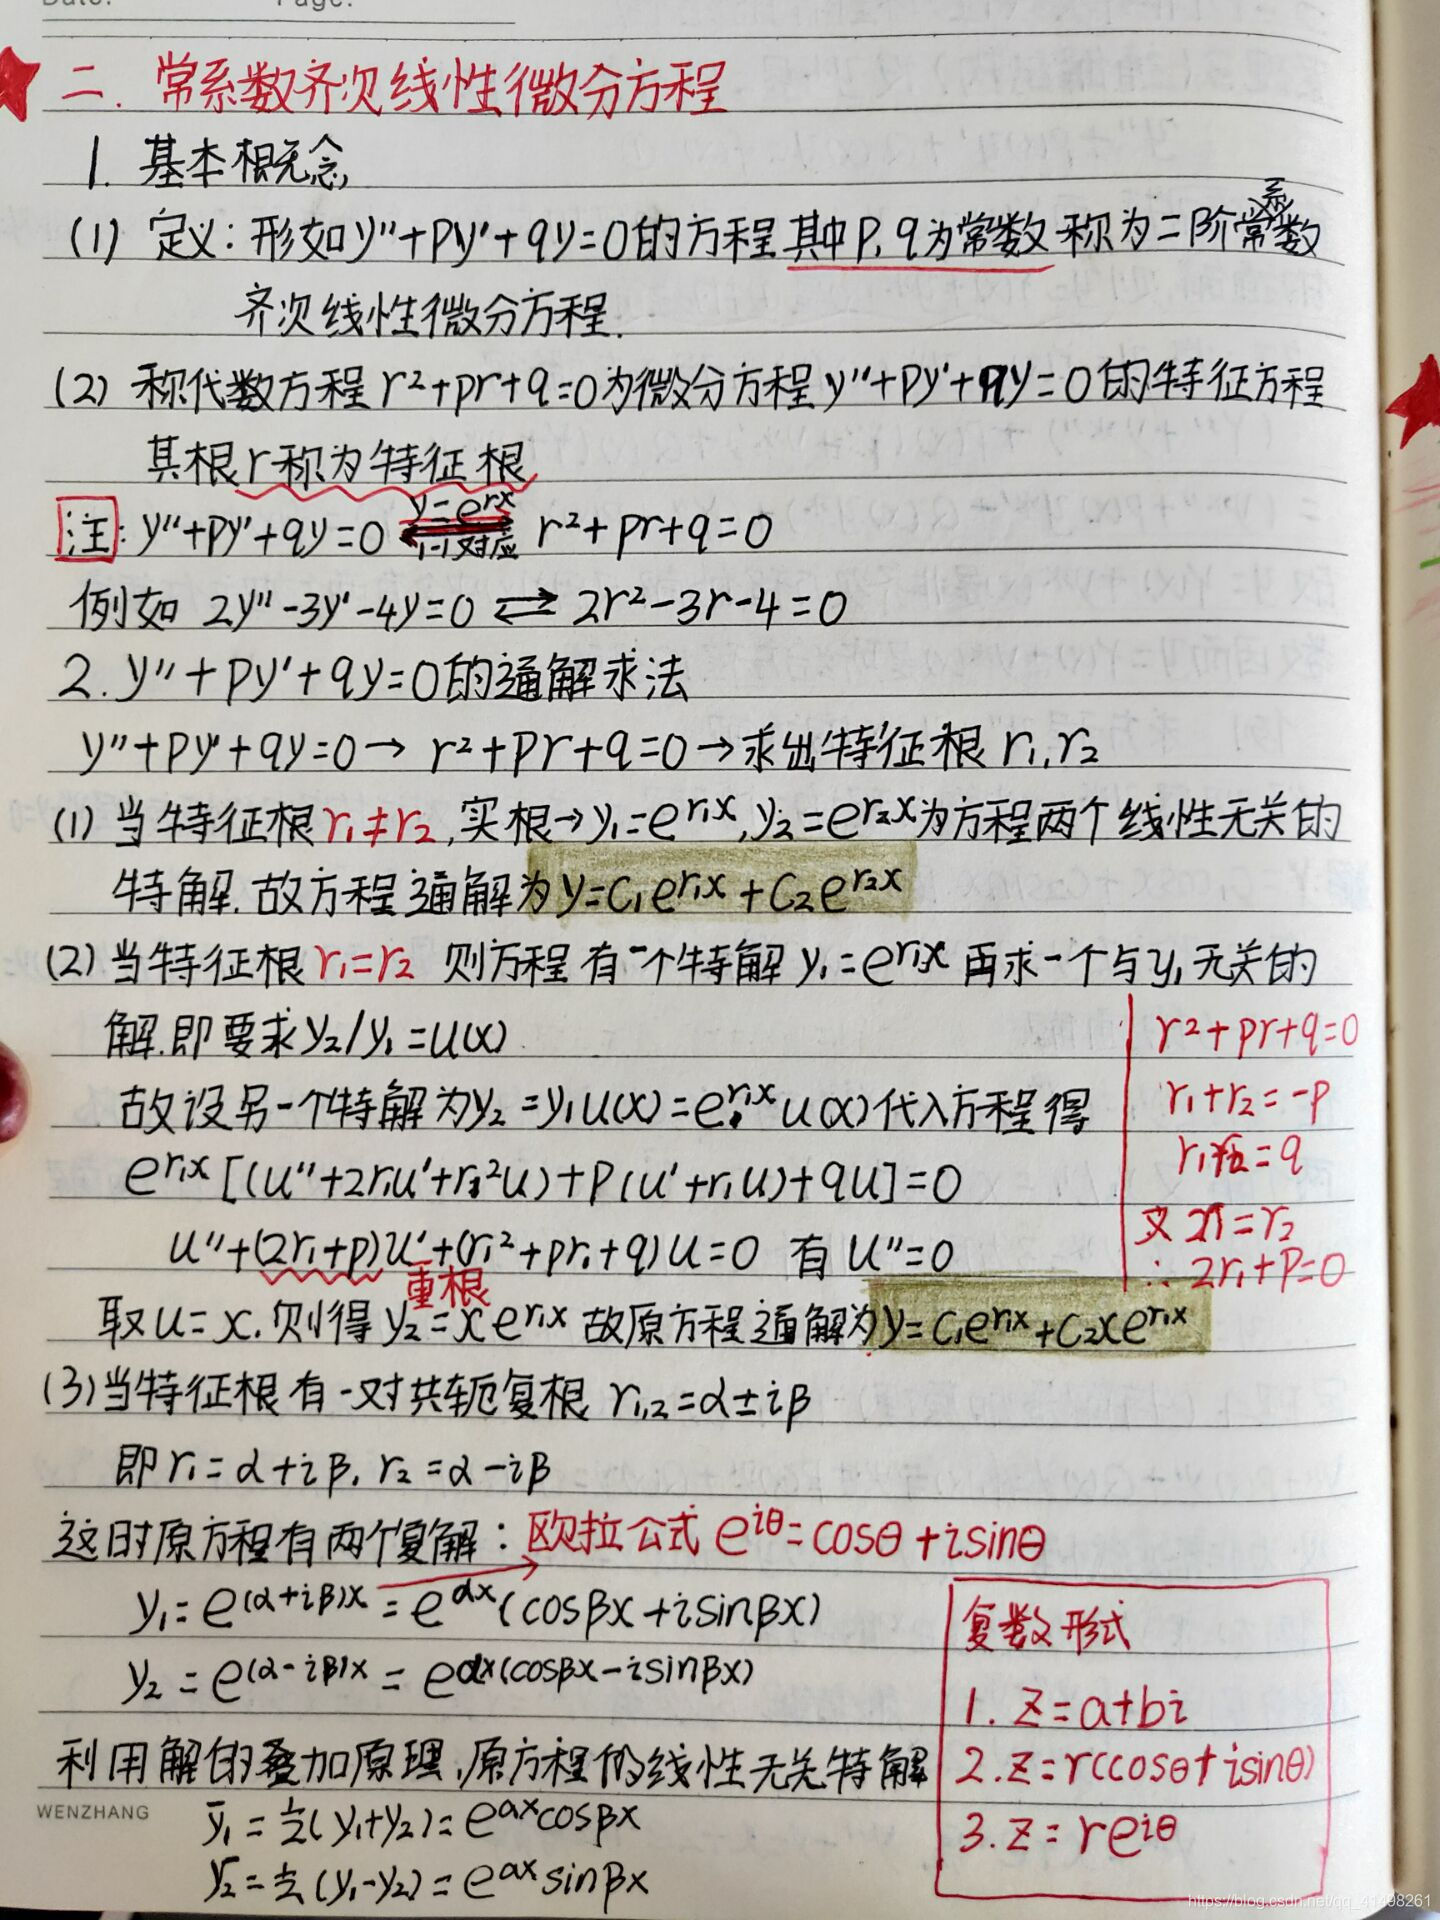 Date: Page:
二. 常系数齐次线性微分方程
1. 基本概念
(1) 定义: 形如y''+py'+qy=0的方程 其中p, q为常数 称为二阶常系数
齐次线性微分方程.
(2) 称代数方程 r²+pr+q=0为微分方程 y''+py'+qy=0的特征方程
其根r称为特征根
注: y''+py'+qy=0 ⇌ r²+pr+q=0
y=e^{rx}
1-1对应
例如 2y''-3y'-4y=0 ⇌ 2r²-3r-4=0
2. y''+py'+qy=0的通解求法
y''+py'+qy=0→ r²+pr+q=0→求出特征根 r₁,r₂
(1) 当特征根r₁≠r₂,实根→y₁=e^{r₁x},y₂=e^{r₂x}为方程两个线性无关的
特解.故方程通解为y=C₁e^{r₁x}+C₂e^{r₂x}
(2) 当特征根r₁=r₂ 则方程有一个特解 y₁=e^{r₁x} 再求一个与y₁无关的
解.即要求y₂/y₁=u(x)
故设另一个特解为y₂=y₁u(x)=e^{r₁x}u(x)代入方程得
e^{r₁x}[(u''+2r₁u'+r₁²u)+p(u'+r₁u)+qu]=0
u''+(2r₁+p)u'+(r₁²+pr₁+q)u=0 有 u''=0
重根
取u=x.则得y₂=xe^{r₁x} 故原方程通解为y=C₁e^{r₁x}+C₂xe^{r₁x}
r²+pr+q=0
r₁+r₂=-p
r₁r₂=q
又 r₁=r₂
∴ 2r₁+p=0
(3)当特征根有一对共轭复根 r₁,₂=α±iβ
即r₁=α+iβ, r₂=α-iβ
这时原方程有两个复解: 欧拉公式 e^{iθ}=cosθ+isinθ
y₁=e^{(α+iβ)x}=e^{αx}(cosβx+isinβx)
y₂=e^{(α-iβ)x}=e^{αx}(cosβx-isinβx)
利用解的叠加原理,原方程的线性无关特解
ȳ₁=½(y₁+y₂)=e^{αx}cosβx
ȳ₂=½(y₁-y₂)=e^{αx}sinβx
复数形式
1. z=a+bi
2. z=r(cosθ+isinθ)
3. z=re^{iθ}
WENZHANG
https://blog.csdn.net/qq_41498261